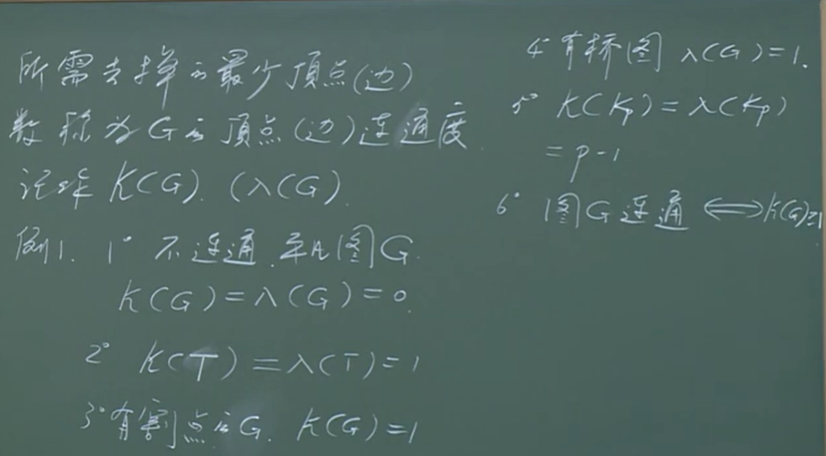 所需去掉的最少顶点(边)
数称为G的顶点(边)连通度.
记作 K(G). (λ(G).
例1. 1° 不连通.平凡图G.
K(G)=λ(G)=0.
2° K(T)=λ(T)=1
3°有割点的G. K(G)=1
4°有桥图 λ(G)=1.
5° K(Kp)=λ(Kp)
=p-1
6° 图G连通 ⟺ K(G)≥1